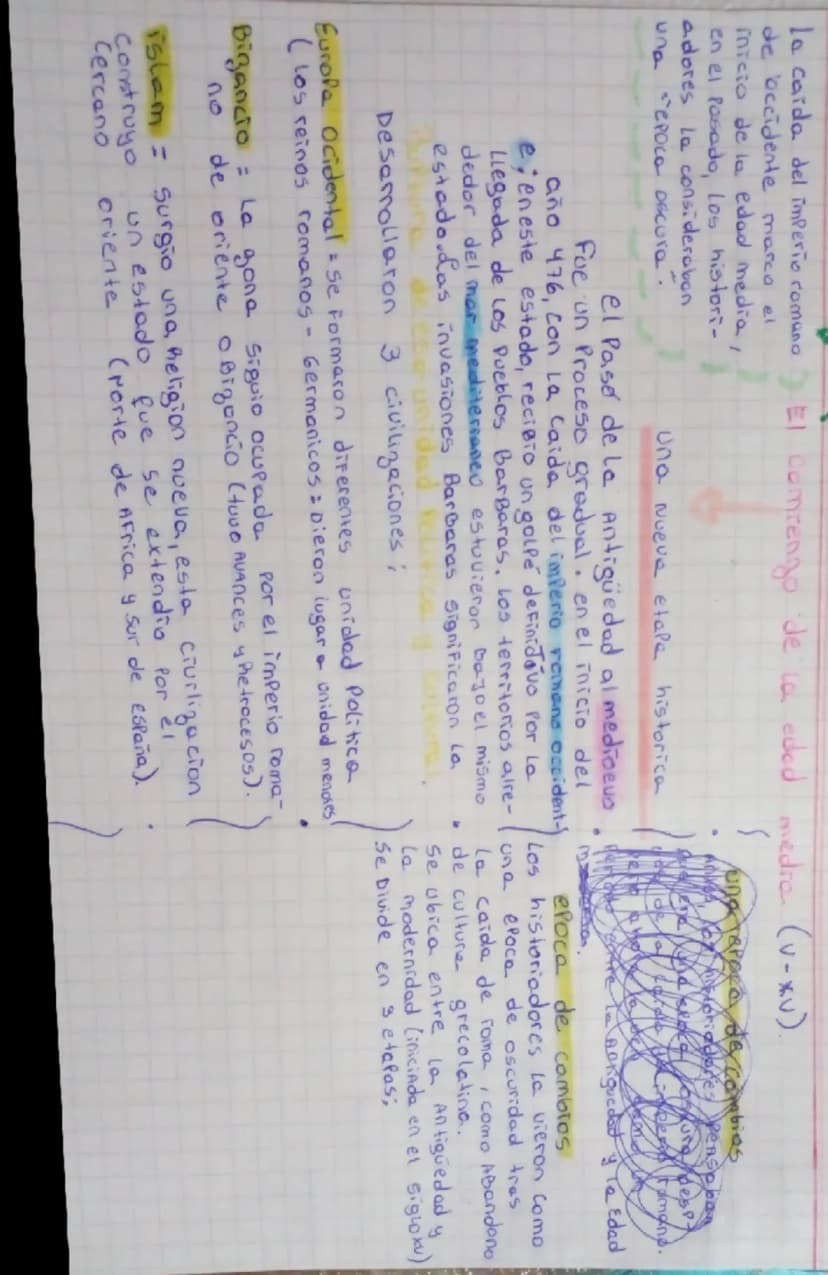 El comienzo de la edad media (V-XV).
la caida del imperio romano
de occidente marco el
inicio de la edad media,
en el pasado, los histori-
adores la consideraban
una "epoca oscura".
una nueva etapa historica
el paso de la Antigüedad al medioevo
fue un proceso gradual. en el inicio del
año 476, con la caida del imperio romano occident-
e; en este estado, recibio un golpe definitivo por la
llegada de los pueblos barbaros. los territorios alre-
dedor del mar mediterraneo estuvieron bajo el mismo
estado. las invasiones barbaras significaron la
de esa unidad politica y cultural.
Desarrollaron 3 civilizaciones;
Europa ocidental = se formaron diferentes unidad politica
(los reinos romanos - Germanicos = Dieron lugar a unidad menores)
Bizancio = La zona siguio ocupada por el imperio roma-
no de oriente o Bizancio (tuvo avances y retrocesos).
islam = surgio una religion nueva, esta civilizacion
construyo un estado que se extendio por el
cercano oriente (norte de Africa y sur de españa).
una epoca de cambios
epoca de cambios
Los historiadores la vieron como
una epoca de oscuridad tras
la caida de roma, como Abandono
de cultura grecolatina.
se ubica entre la Antigüedad y
la modernidad (iniciada en el siglo XV)
se Divide en 3 etapas;